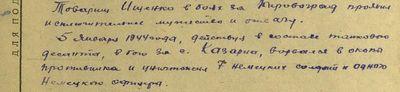 Товарищ Ищенко в боях за Кировоград проявил
исключительное мужество и отвагу.
5 января 1944 года, действуя в составе танкового
десанта, в бою за с. Казарна, ворвался в окопы
противника и уничтожил 7 немецких солдат и одного
немецкого офицера.
ДЛЯ ПО